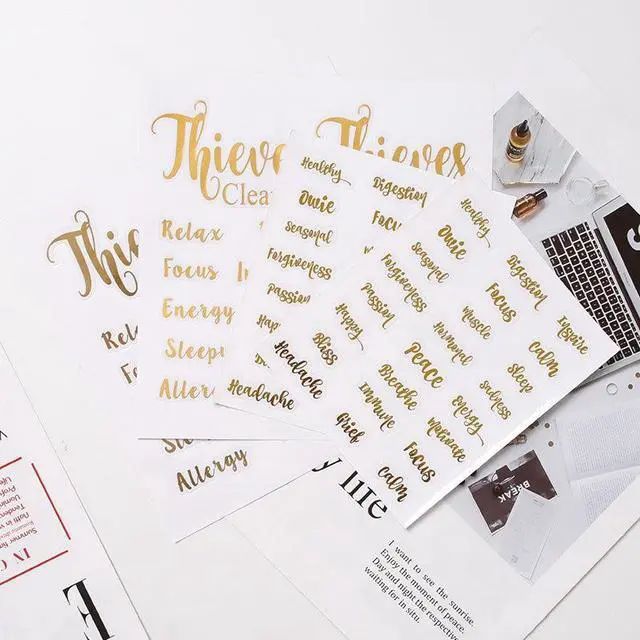 Thieves
Clea
Relax
Focus
Energy
Sleep
Allerg
Thieves
Thie
Rel
Allergy
Healthy
Owie
Seasonal
Forgiveness
Passion
Headache
Digestion
Healthy
Owie
Seasonal
Forgiveness
Passion
Happy
Bliss
Headache
Digestion
Focus
Muscle
Hormonal
Peace
Breathe
Immune
Grief
Inspire
Calm
Sleep
Sadness
Energy
Motivate
Focus
Calm
y life
BREAK
I want to see the sunrise.
Enjoy the moment of peace.
Day and night the respective
waiting for in situ.
IN
E